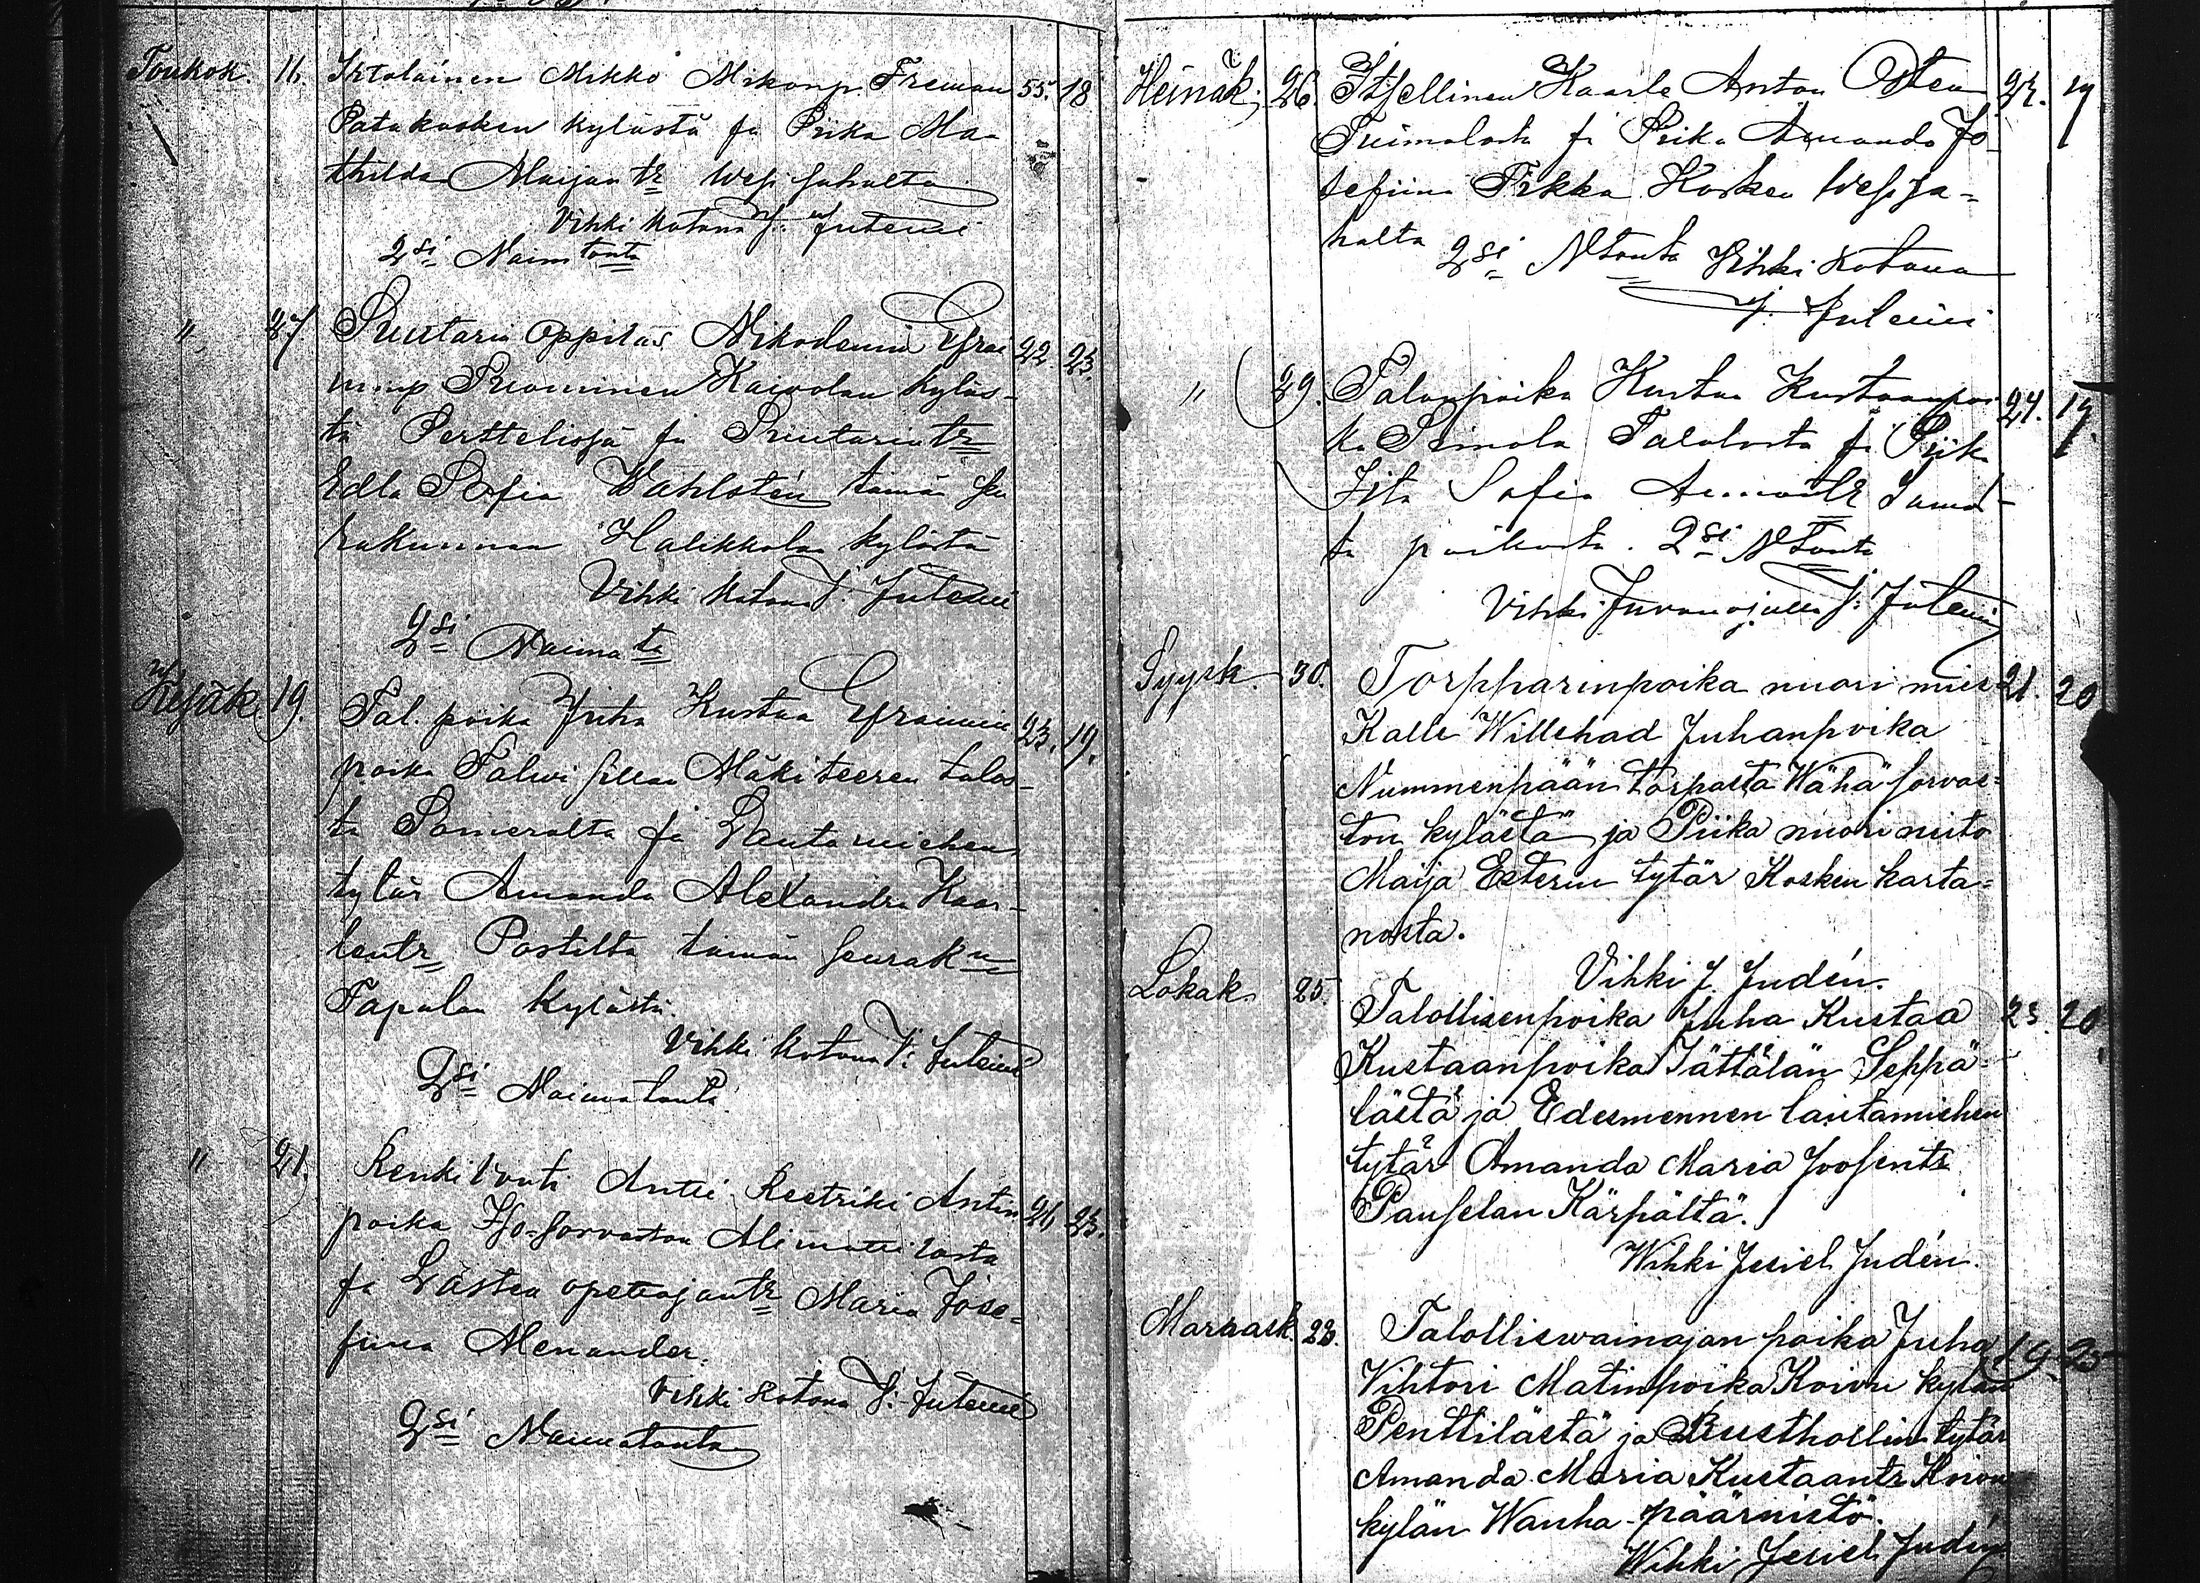 Toukok. 16. Itolainen Mikko Mikonp. Freman 55. 18
Patakosken kylästä ja Piika Ma-
thilda Maijantr Wesijahalta
Vihki kotona J. Juteini
2si Naimtonta
" 27. Suutarin oppilas Nikodemus Efrai 22 23.
minp Tuominen Kaivolan kyläs-
tä Perttelissä ja Suutarintr
Edla Sofia Wahlstén tämän seu
rakunnan Halikkolan kylästä
Vihki kotona J. Juteini
2si Naimata
Kesäk. 19. Tal. poika Juha Kustaa Efraimin 23. 19.
poika Talwisillan Mäkiteeren talos-
ta Somerolta ja Lautamiehen
tytär Amanda Alexandra Kaar-
lentr Postilta tämän seurak
Tapalan kylästä.
Vihki kotona J. Juteini
2si Naimatonta
" 21. Renkivouti Antti Keetriki Antin 26 23.
poika Iso-sorvaston Alimattilasta
ja Lasten opettajantr Maria Jose-
fiina Menander.
Vihki kotona J. Juteini
2si Naimatonta
Heinäk. 26. Itsellinen Kaarle Anton Osten 23. 19
Tuimalasta ja Piika Amanda Jo-
sefiina Pirkka Kosken Wesija-
halta 2si Ntonta Vihki kotona
J. Juteini
" 29. Talonpoika Kustaa Kustaanpoi 24. 19.
ka Simola Talolasta ja Piika
Iita Sofia
ta paikasta. 2si Ntonta
Vihki Juvanojalla J. Juteini
Syysk. 30. Torpparinpoika nuori mies 21. 20
Kalle Willehad Juhanpoika
Nummenpään torpasta Wähä sorvas-
ton kylästä ja Piika nuori neito
Maija Esterin tytär Kosken karta-
nosta.
Vihki J. Judén.
Lokak. 25. Talollisenpoika Juha Kustaa 23. 20
Kustaanpoika Tättälän Seppä-
lästä ja Edesmennen lautamiehen
tytär Amanda Maria Joosentr
Pauselan Kärpältä.
Wihki Jesiel Judén.
Marrask. 22. Talolliswainajan poika Juha 19. 20
Vihtori Matinpoika Koivu kylän
Penttilästä ja Rusthollin tytär
Amanda Maria Kustaantr Koivu
kylän Wanha-päärnistö.
Wihki Jesiel Judén